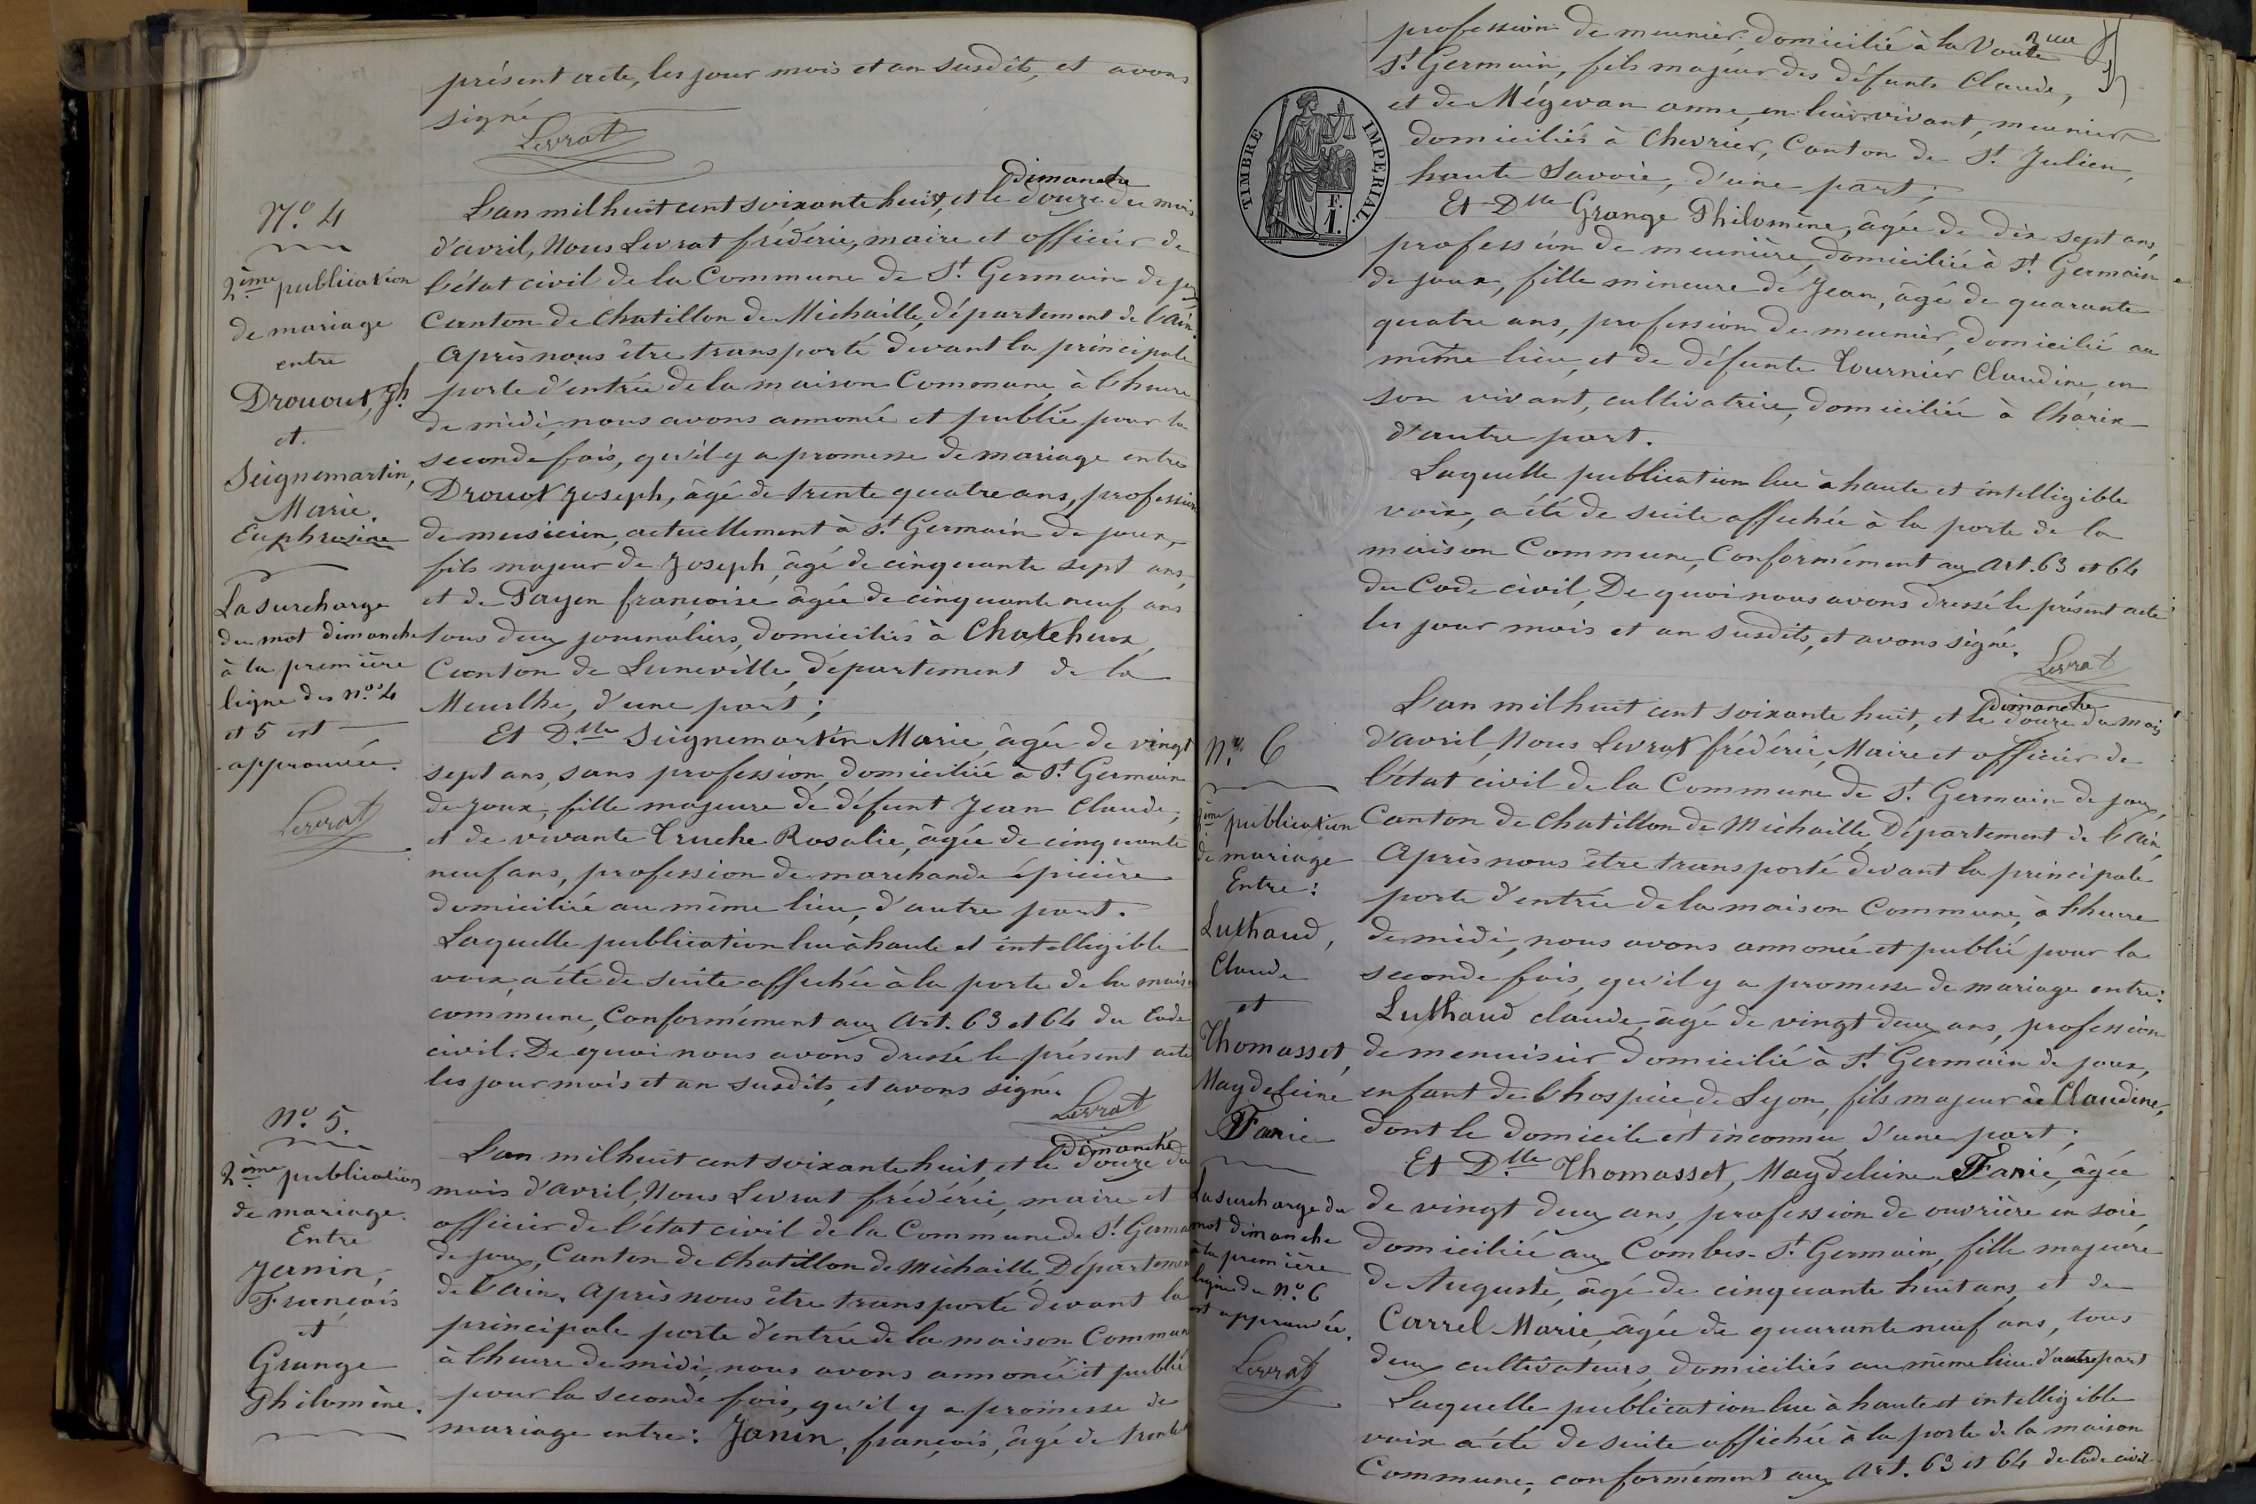 présent acte, les jour mois et an susdits, et avons
signé
Levrat
N.o 4
2ème publication
de mariage
entre
Drouout, Jh
et
Seignemartin,
Marie.
Euphrosine
La surcharge
du mot dimanche
à la première
ligne des nos 4
et 5 est
approuvée.
Levrat
dimanche
L'an mil huit cent soixante huit, et le douze du mois
d'avril, Nous Levrat frédéric, maire et officier de
l'état civil de la Commune de St Germain de joux
Canton de Chatillon de Michaille, département de l'Ain.
Après nous être transporté devant la principale
porte d'entrée de la maison Commune, à l'heure
de midi, nous avons annoncé et publié pour la
seconde fois, qu'il y a promesse de mariage entre
Drouot Joseph, âgé de trente quatre ans, profession
de musicien, actuellement à St Germain de joux,
fils majeur de Joseph, âgé de cinquante sept ans,
et de Payen françoise âgée de cinquante neuf ans
tous deux journaliers, domiciliés à Chateheux
Canton de Luneville, département de la
Meurthe, d'une part;
Et Dlle Seignemartin Marie, âgée de vingt
sept ans, sans profession, domiciliée à St Germain
de Joux, fille majeure de défunt Jean Claude,
et de vivante Truche Rosalie, âgée de cinquante
neuf ans, profession de marchande épicière
domiciliée au même lieu, d'autre part.
Laquelle publication lue à haute et intelligible
voix, a été de suite affichée à la porte de la maison
commune, Conformément aux Art. 63 et 64 du Code
civil. De quoi nous avons dressé le présent acte
les jour mois et an susdits, et avons signé.
Levrat
N.o 5.
2ème publication
de mariage.
Entre
Janin,
François
et
Grange
Philomène.
Dimanche
L'an mil huit cent soixante huit, et le douze du
mois d'avril, Nous Levrat frédéric, maire et
officier de l'état civil de la Commune de St Germain
de joux, Canton de Chatillon de Michaille, Département
de l'Ain. Après nous être transporté devant la
principale porte d'entrée de la maison Commune
à l'heure de midi, nous avons annoncé et publié
pour la seconde fois, qu'il y a promesse de
mariage entre: Janin, françois, âgé de trente
profession de meunier, domicilié à la Voute
St Germain, fils majeur des défunts Claude,
et de Mégevan anne, en leur vivant, meuniers
domiciliés à Chevrier, Canton de St Julien,
haute Savoie, d'une part;
TIMBRE IMPERIAL.
F.
1.
Et Dlle Grange Philomène, âgée de dix sept ans,
profession de meunière, domiciliée à St Germain
de joux, fille mineure de Jean, âgé de quarante
quatre ans, profession de meunier, domicilié au
même lieu, et de défunte Tournier Claudine, en
son vivant, cultivatrice, domiciliée à Charix
d'autre part.
Laquelle publication lue à haute et intelligible
voix, a été de suite affichée à la porte de la
maison Commune, Conformément aux Art. 63 et 64
du Code civil, De quoi nous avons dressé le présent acte
les jour mois et an susdits, et avons signé.
Levrat
N.o 6
2ème publication
de mariage
Entre:
Luthaud,
Claude
et
Thomasset,
Magdeleine
Fanie
La surcharge du
mot dimanche
à la première
ligne du No 6
est approuvée.
Levrat
Dimanche
L'an mil huit cent soixante huit, et le douze du mois
d'avril, Nous Levrat frédéric, Maire et officier de
l'état civil de la Commune de St Germain de joux,
Canton de Chatillon de Michaille, Département de l'Ain,
Après nous être transporté devant la principale
porte d'entrée de la maison Commune, à l'heure
de midi, nous avons annoncé et publié pour la
seconde fois, qu'il y a promesse de mariage entre:
Luthaud claude, âgé de vingt deux ans, profession
de menuisier domicilié à St Germain de joux,
enfant de l'hospice de Lyon, fils majeur de Claudine,
dont le domicile est inconnu d'une part;
Et Dlle Thomasset, Magdeleine Fanie, âgée
de vingt deux ans, profession de ouvrière en soie,
domiciliée aux Combes-St Germain, fille majeure
de Auguste, âgé de cinquante huit ans, et de
Carrel Marie, âgée de quarante neuf ans, tous
deux cultivateurs, domiciliés au même lieu d'autre part
Laquelle publication lue à haute et intelligible
voix a été de suite affichée à la porte de la maison
Commune, conformément aux Art. 63 et 64 de Code civil